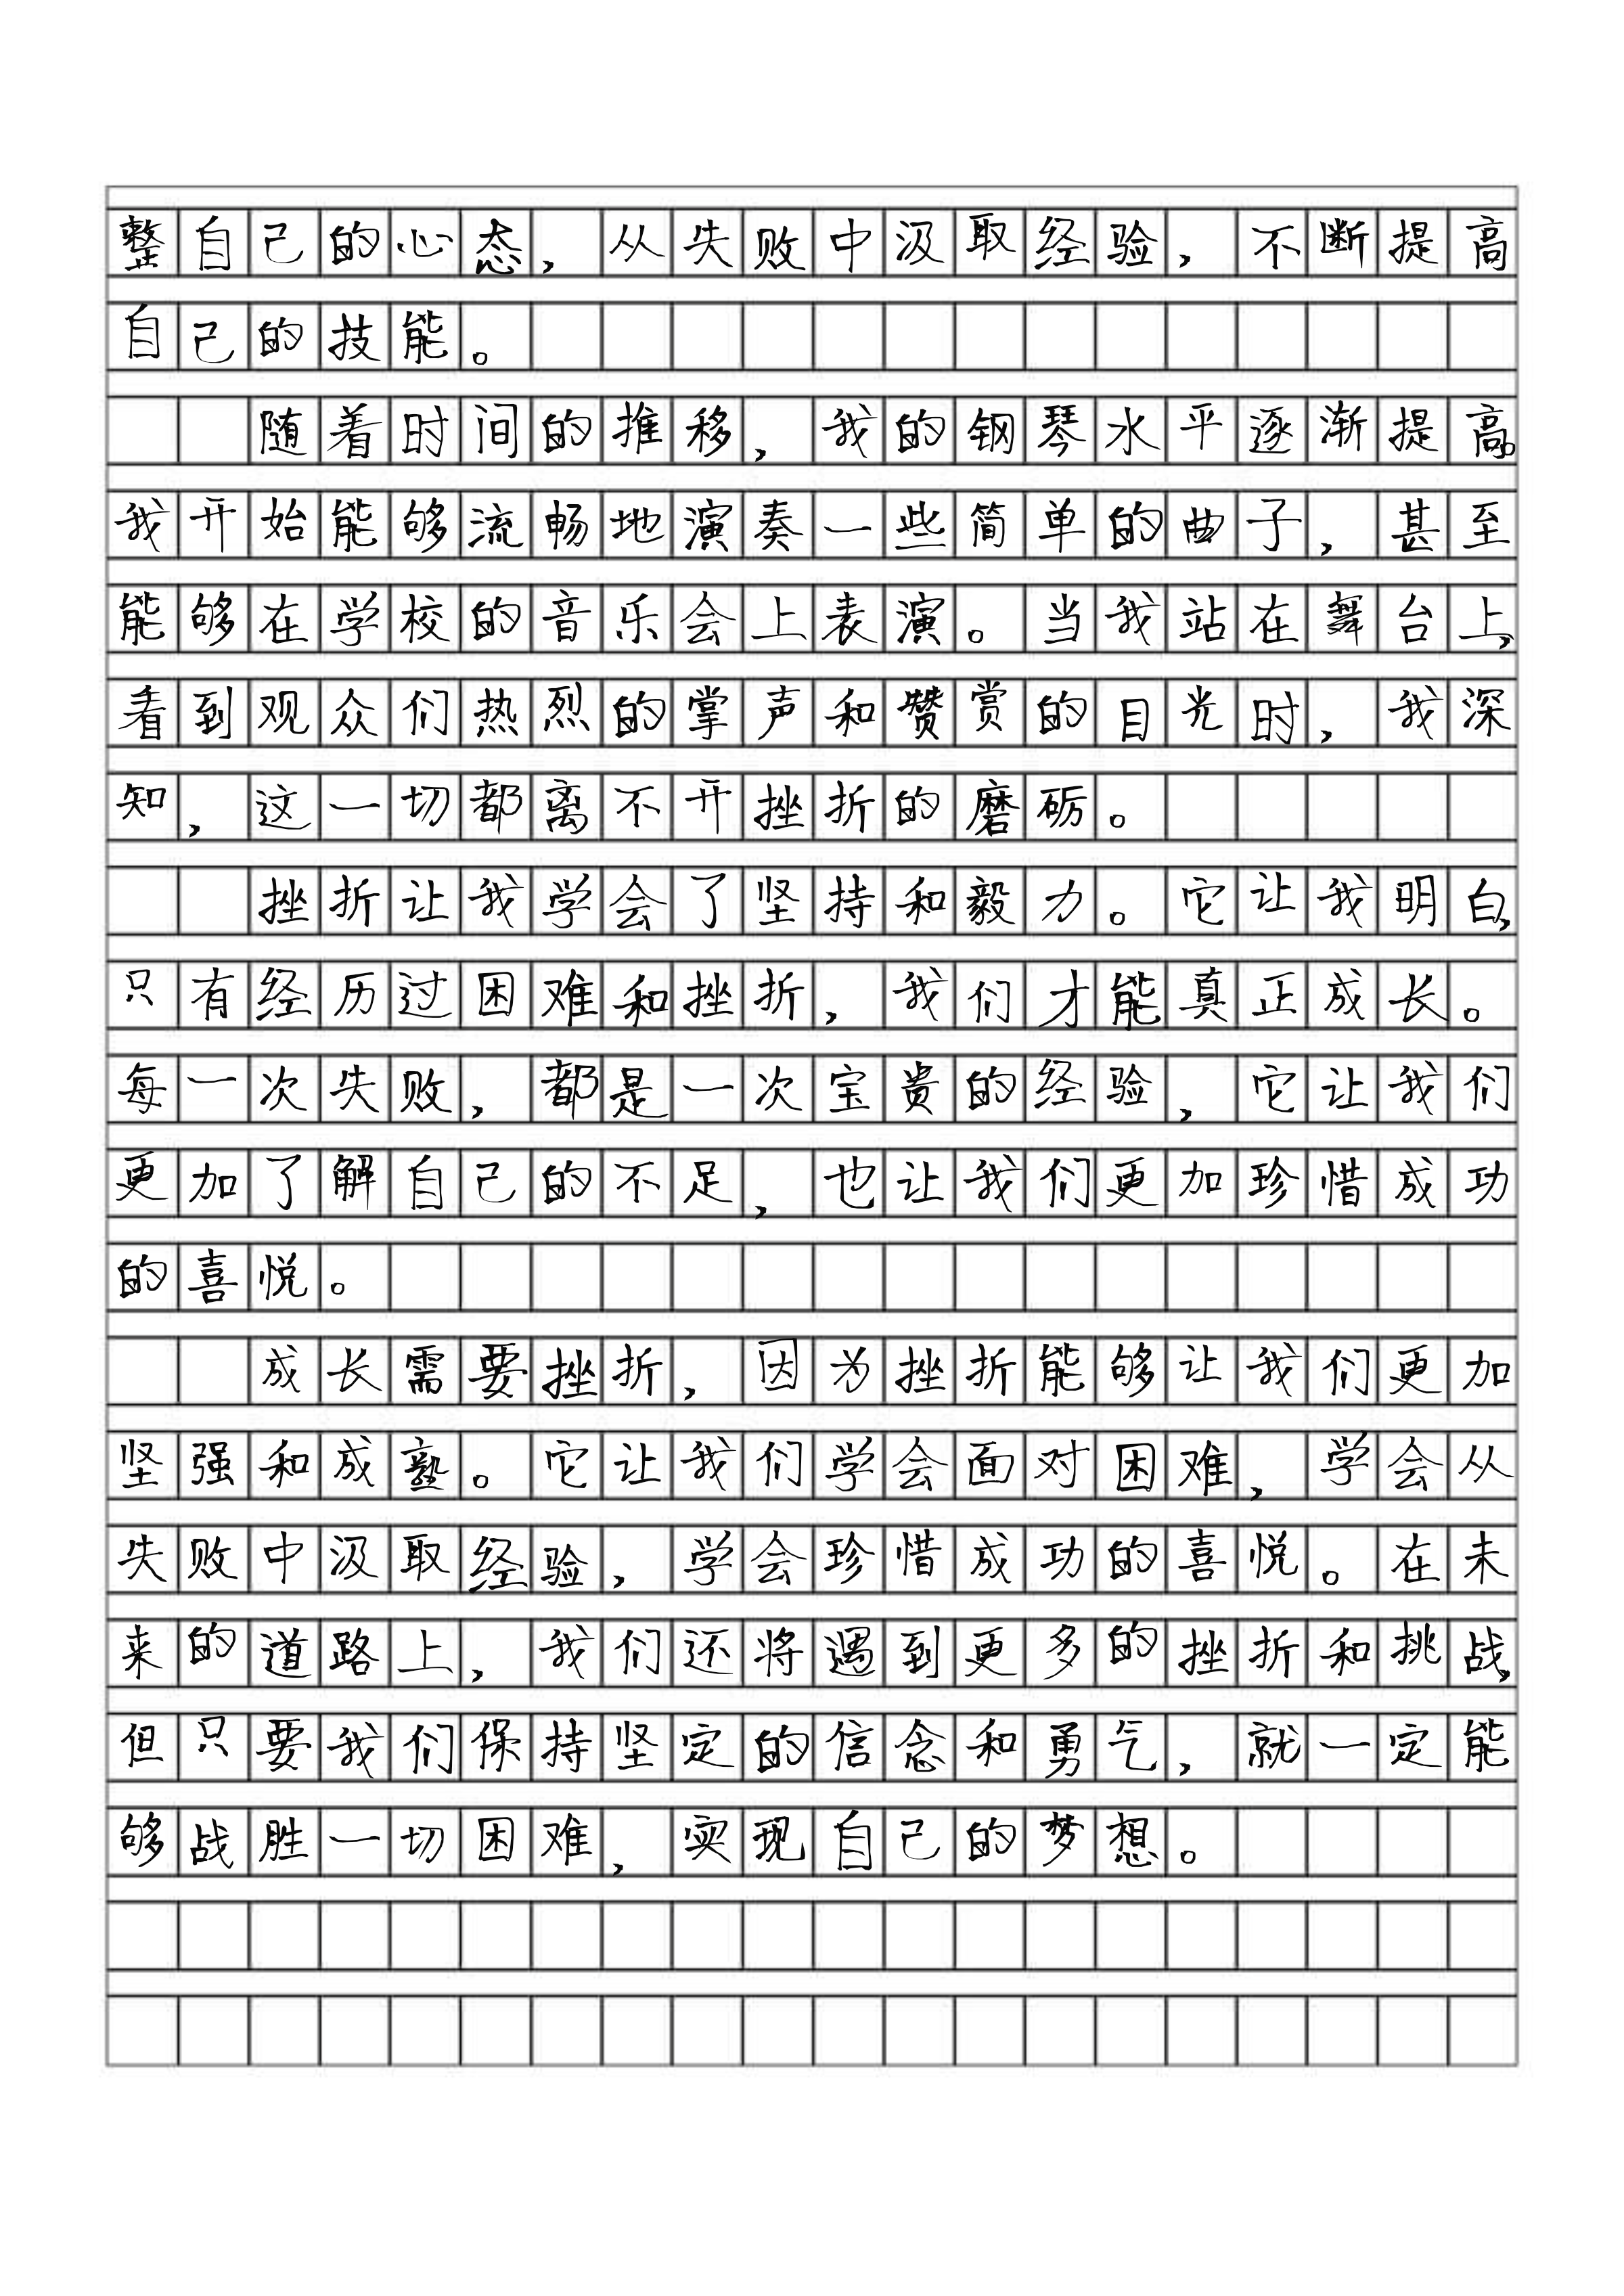 整自己的心态，从失败中汲取经验，不断提高
自己的技能。
随着时间的推移，我的钢琴水平逐渐提高。
我开始能够流畅地演奏一些简单的曲子，甚至
能够在学校的音乐会上表演。当我站在舞台上，
看到观众们热烈的掌声和赞赏的目光时，我深
知，这一切都离不开挫折的磨砺。
挫折让我学会了坚持和毅力。它让我明白，
只有经历过困难和挫折，我们才能真正成长。
每一次失败，都是一次宝贵的经验，它让我们
更加了解自己的不足，也让我们更加珍惜成功
的喜悦。
成长需要挫折，因为挫折能够让我们更加
坚强和成熟。它让我们学会面对困难，学会从
失败中汲取经验，学会珍惜成功的喜悦。在未
来的道路上，我们还将遇到更多的挫折和挑战，
但只要我们保持坚定的信念和勇气，就一定能
够战胜一切困难，实现自己的梦想。